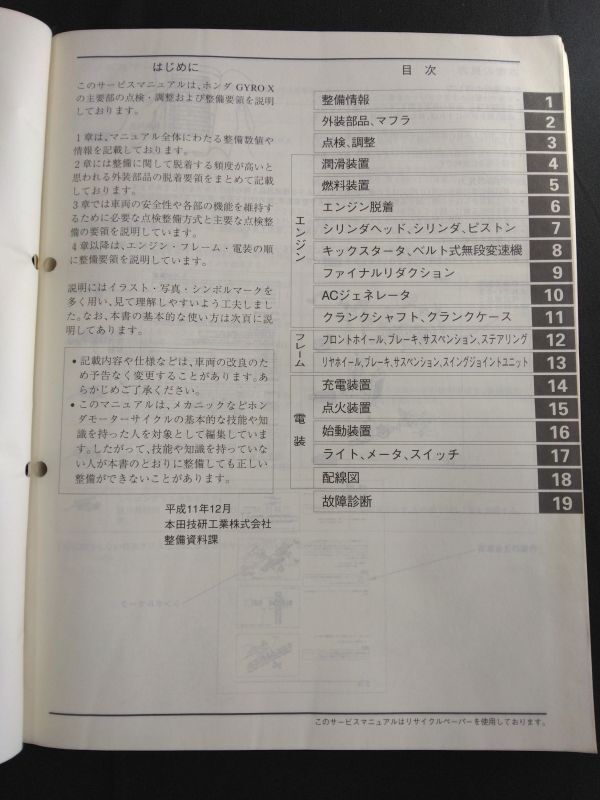 はじめに
このサービスマニュアルは、ホンダ GYRO X
の主要部の点検・調整および整備要領を説明
しております。
1章は、マニュアル全体にわたる整備数値や
情報を記載しております。
2章には整備に関して脱着する頻度が高いと
思われる外装部品の脱着要領をまとめて記載
しております。
3章では車両の安全性や各部の機能を維持す
るために必要な点検整備方式と主要な点検整
備の要領を説明しています。
4章以降は、エンジン・フレーム・電装の順
に整備要領を説明しています。
説明にはイラスト・写真・シンボルマークを
多く用い、見て理解しやすいよう工夫しまし
た。なお、本書の基本的な使い方は次頁に説
明してあります。
• 記載内容や仕様などは、車両の改良のた
め予告なく変更することがあります。あ
らかじめご了承ください。
• このマニュアルは、メカニックなどホン
ダモーターサイクルの基本的な技能や知
識を持った人を対象として編集していま
す。したがって、技能や知識を持っていな
い人が本書のとおりに整備しても正しい
整備ができないことがあります。
平成11年12月
本田技研工業株式会社
整備資料課
目 次
整備情報 1
外装部品、マフラ 2
点検、調整 3
エンジン
潤滑装置 4
燃料装置 5
エンジン脱着 6
シリンダヘッド、シリンダ、ピストン 7
キックスタータ、ベルト式無段変速機 8
ファイナルリダクション 9
ACジェネレータ 10
クランクシャフト、クランクケース 11
フレーム
フロントホイール、ブレーキ、サスペンション、ステアリング 12
リヤホイール、ブレーキ、サスペンション、スイングジョイントユニット 13
電装
充電装置 14
点火装置 15
始動装置 16
ライト、メータ、スイッチ 17
配線図 18
故障診断 19
このサービスマニュアルはリサイクルペーパーを使用しております。